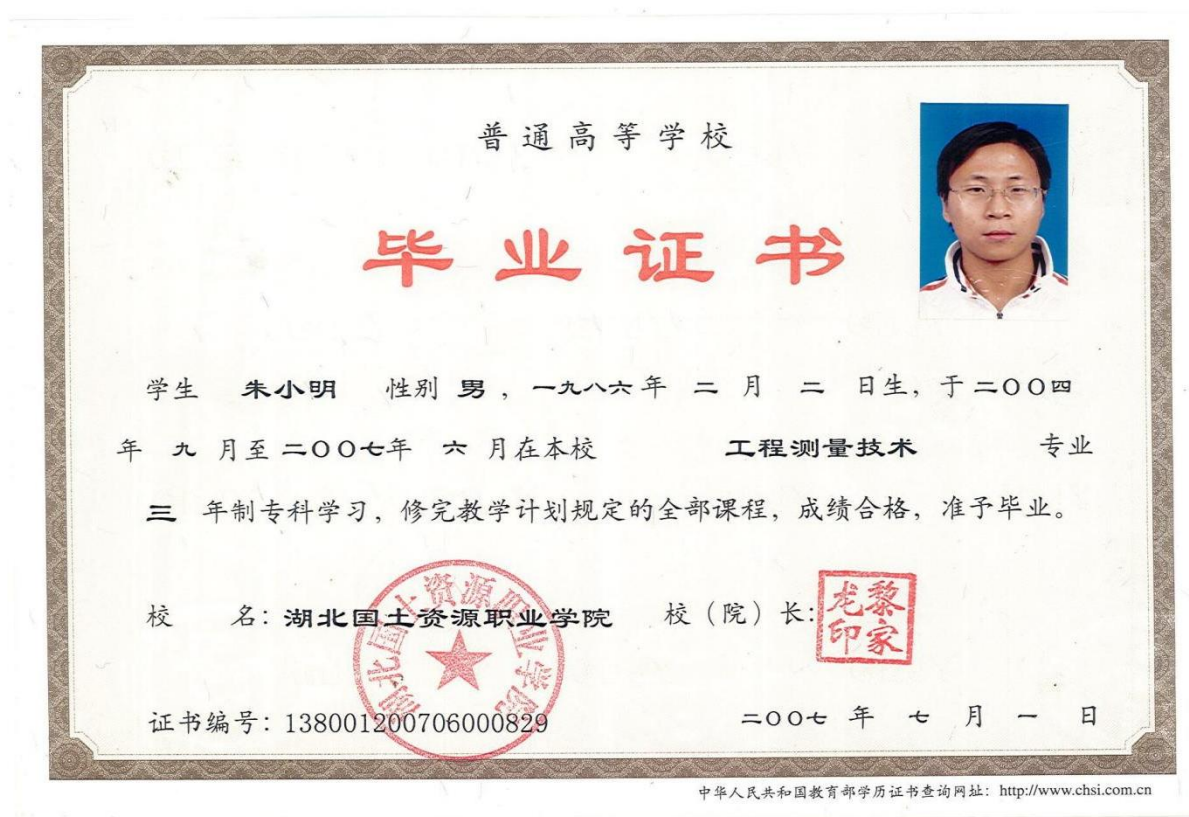 普通高等学校
毕业证书
学生 朱小明 性别 男，一九八六年 二 月 二 日生，于二〇〇四
年 九 月至二〇〇七年 六 月在本校 工程测量技术 专业
三 年制专科学习，修完教学计划规定的全部课程，成绩合格，准予毕业。
校 名：湖北国土资源职业学院 校（院）长：
湖北国土资源职业学院
黎家龙印
证书编号：138001200706000829
二〇〇七 年 七 月 一 日
中华人民共和国教育部学历证书查询网址：http://www.chsi.com.cn